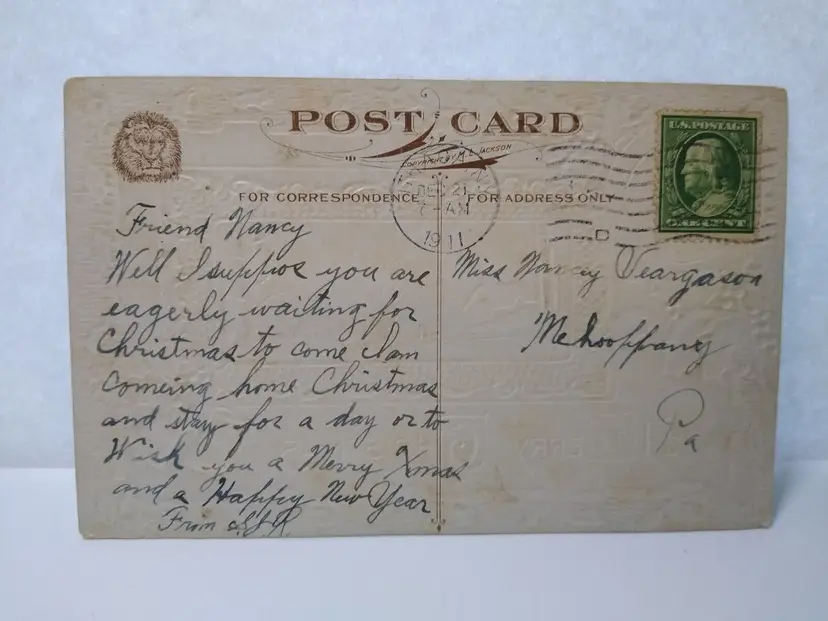 POST CARD
COPYRIGHT BY M.L. JACKSON
U.S. POSTAGE
ONE CENT
DEC 21
7-AM
1911
FOR CORRESPONDENCE
FOR ADDRESS ONLY
Friend Nancy
Well I suppos you are
eagerly waiting for
Christmas to come I am
comeing home Christmas
and stay for a day or to
Wish you a Merry Xmas
and a Happy New Year
From
Miss Nancy Veargason
Mehooppany
Pa